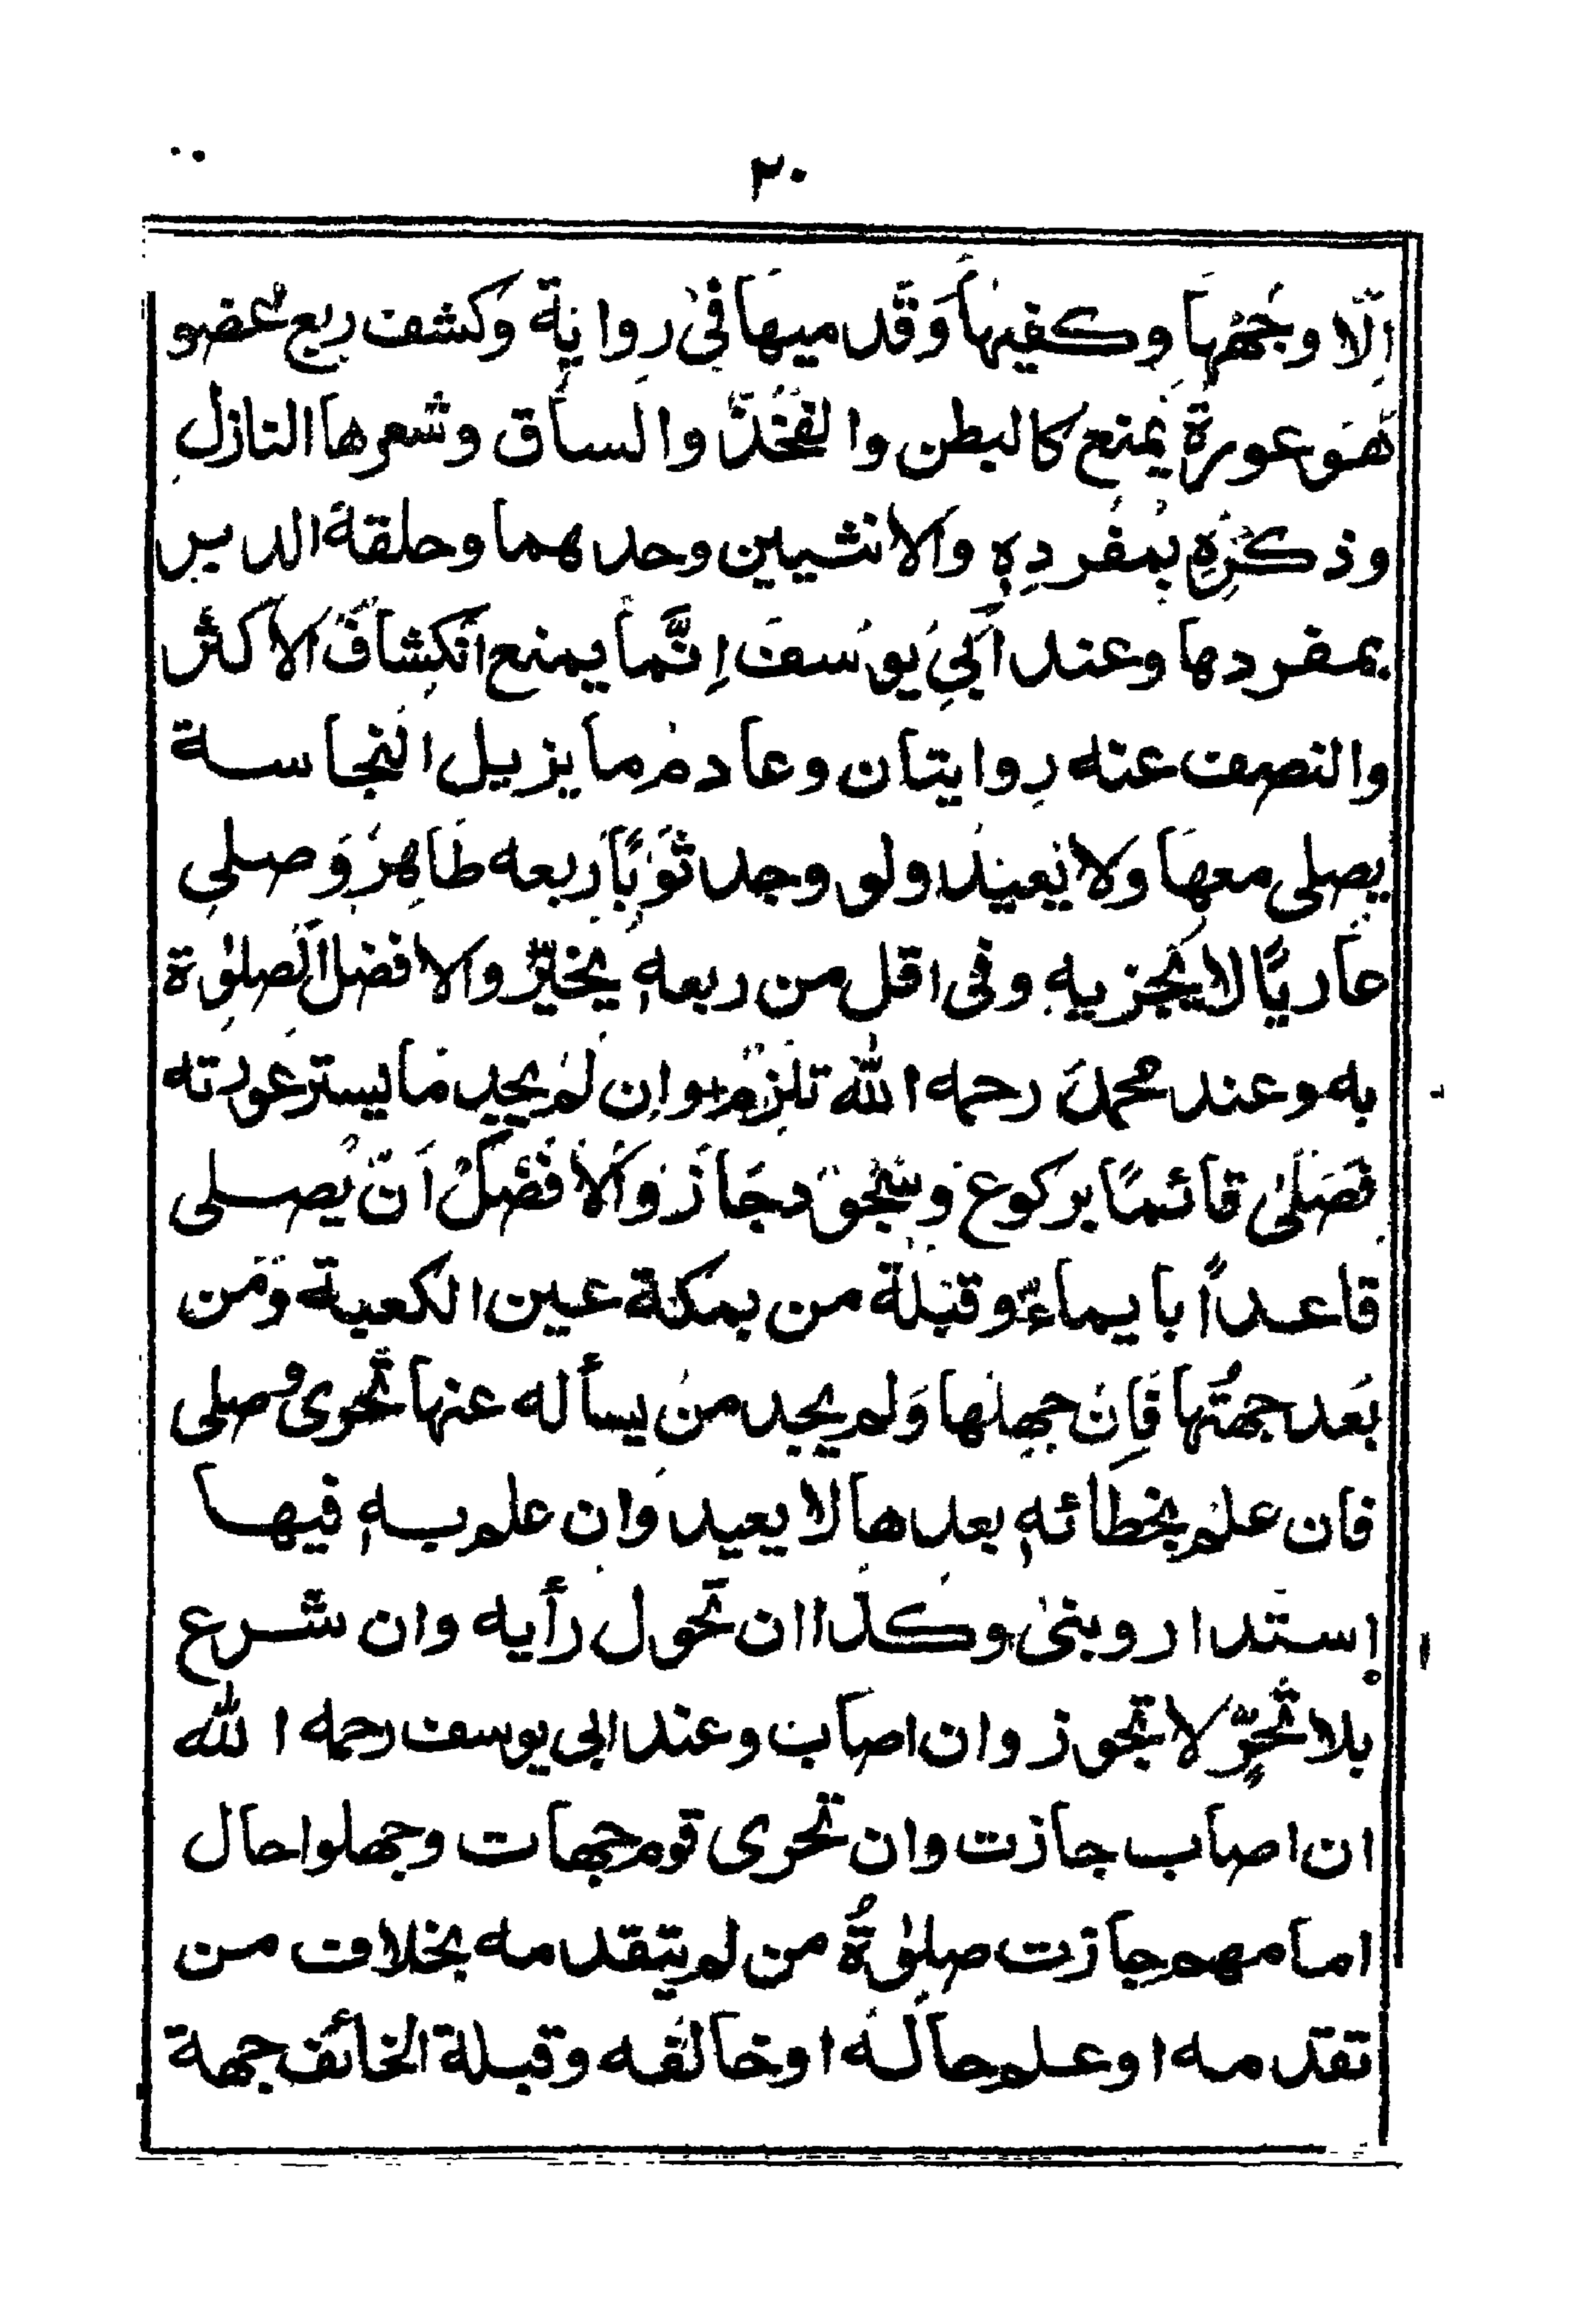 ٣٠
اِلّا وجُهْهَا وكفيهَا وَقَدميهَا فِىْ رِوايَة وَكشف ربع عُضو
هُوَ عورة يَمنع كالبطن والفَخُذّ والساق وشعرها النازل
وذكرُهٖ بمُفردهٖ والانثيين وحدهما وحلقة الدبر
بمفردها وعند اَبِىْ يوسُفَ اِنَّما يمنع انكِشافُ الاكثر
والنصف عنه رِوايتان وعادمُ ما يزيل النجاسة
يصلى معهَا ولا يُعيدُ ولو وجد ثَوْبًا رَبعه طَاهِرٌ وَصلى
عَاريًا لا يَجزيهِ وفى اقل من ربعهٖ يخيّرُ والافضل الصلٰوة
به وعند محمدَ رحمه الله تلزمُ وان لم يجد مَا يستر عورته
فَصَلّى قائمًا بركوع وسُجُود جَازَ وَالافضَلُ اَنّ يُصلى
قاعداً بايماءٍ وقبلة من بمكة عين الكعبة وَمَن
بَعُد جهتُها فَاِنْ جهلها وَلم يجد من يسأله عنها تَحرى وصلى
فان علم بخطائهٖ بعدها لا يعيد وَان علم بهٖ فيها
اِستَدار وبنىٰ وكذا ان تَحول رأيه وان شرع
بلا تَحرٍّ لا تجوز وان اصَاب وعند ابى يوسف رحمه الله
ان اصاب جازت وان تحرى قوم جهات وجهلوا حال
امامهم جازت صلٰوةُ من لم يتقدمه بخلاف من
تقدمه او علم حاله او خالفه وقبلة الخائف جهة